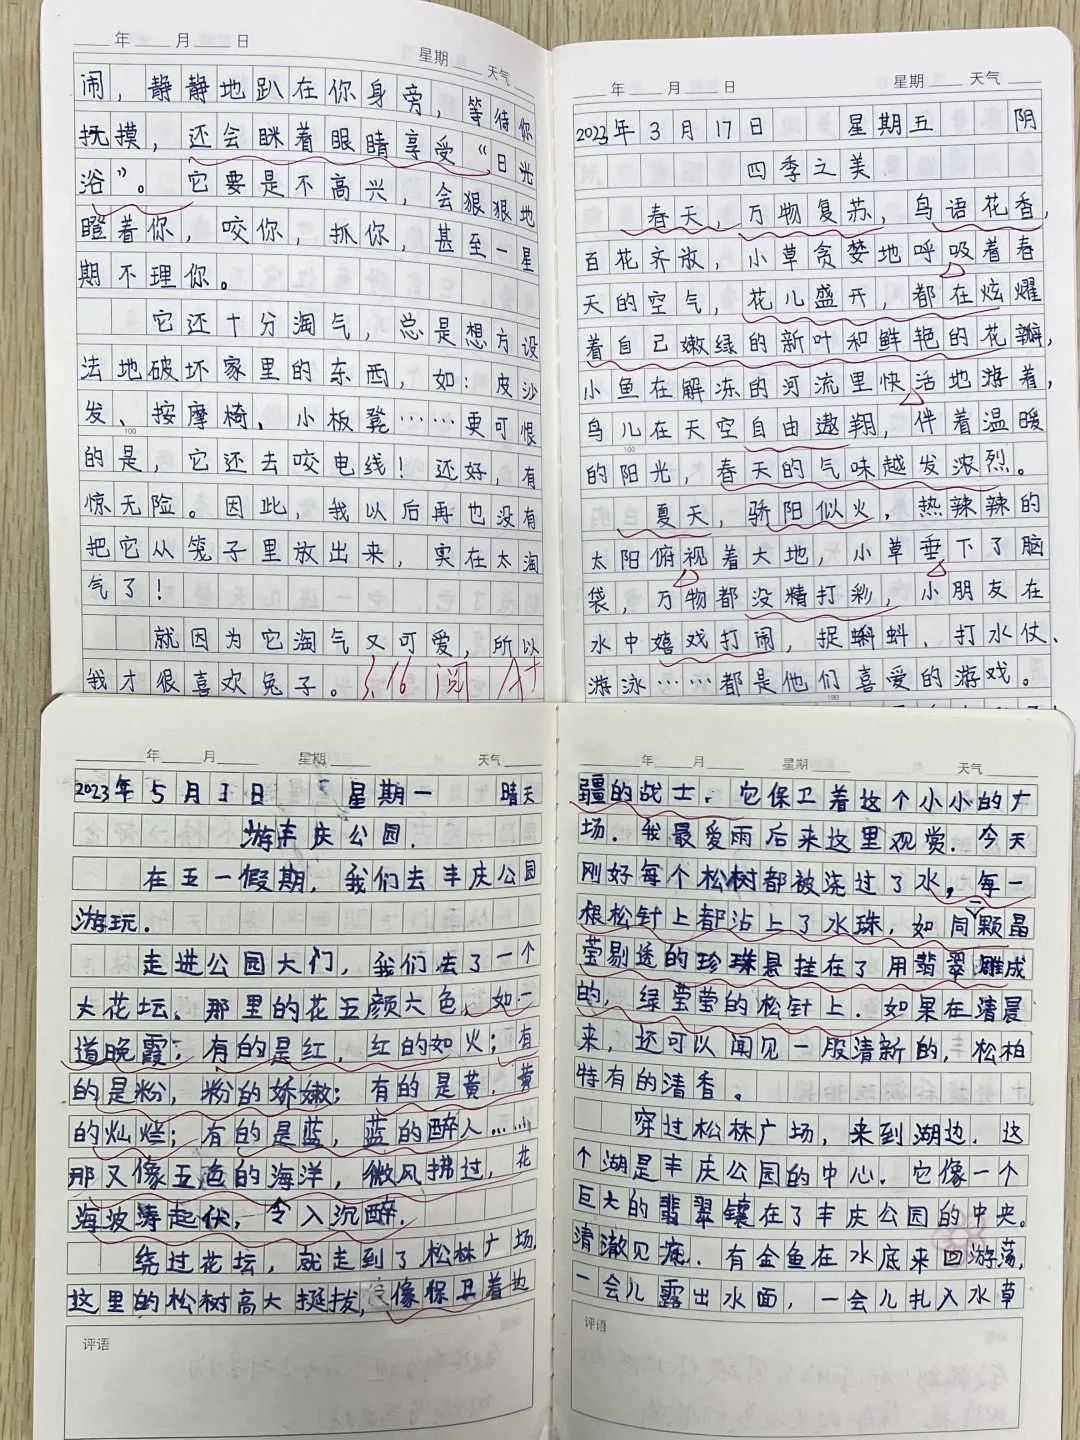 年 月 日 星期 天气
闹，静静地趴在你身旁，等待你
抚摸，还会眯着眼睛享受“日光
浴”。它要是不高兴，会狠狠地
瞪着你，咬你，抓你，甚至一星
期不理你。
它还十分淘气，总是想方设
法地破坏家里的东西，如：皮沙
发、按摩椅、小板凳……更可恨
100
的是，它还去咬电线！还好，有
惊无险。因此，我以后再也没有
把它从笼子里放出来，实在太淘
气了！
就因为它淘气又可爱，所以
我才很喜欢兔子。3.16 阅 A+
年 月 日 星期 天气
2023年3月17日 星期五 阴
四季之美
春天，万物复苏，鸟语花香，
百花齐放，小草贪婪地呼吸着春
天的空气，花儿盛开，都在炫耀
着自己嫩绿的新叶和鲜艳的花瓣，
小鱼在解冻的河流里快活地游着，
鸟儿在天空自由遨翔，伴着温暖
100
的阳光，春天的气味越发浓烈。
夏天，骄阳似火，热辣辣的
太阳俯视着大地，小草垂下了脑
袋，万物都没精打彩，小朋友在
水中嬉戏打闹，捉蝌蚪、打水仗、
游泳……都是他们喜爱的游戏。
190
年 月 星期 天气
2023年5月1日 星期一 晴天
游丰庆公园.
在五一假期，我们去丰庆公园
游玩.
走进公园大门，我们去了一个
大花坛。那里的花五颜六色，如一
道晚霞；有的是红，红的如火；有
的是粉，粉的娇嫩；有的是黄.黄
的灿烂；有的是蓝，蓝的醉人……
那又像五色的海洋，微风拂过，花
海波涛起伏，令人沉醉.
绕过花坛，就走到了松林广场.
这里的松树高大挺拔，像保卫着边
评语
年 月 星期 天气
疆的战士.它保卫着这个小小的广
场.我最爱雨后来这里观赏.今天
刚好每个松树都被浇过了水，每一
根松针上都沾上了水珠，如同颗晶
莹剔透的珍珠悬挂在了用翡翠雕成
的，绿莹莹的松针上.如果在清晨
来，还可以闻见一股清新的，松柏
特有的清香。
穿过松林广场，来到湖边.这
个湖是丰庆公园的中心.它像一个
巨大的翡翠镶在了丰庆公园的中央.
清澈见底.有金鱼在水底来回游荡，
一会儿露出水面，一会儿扎入水草
评语